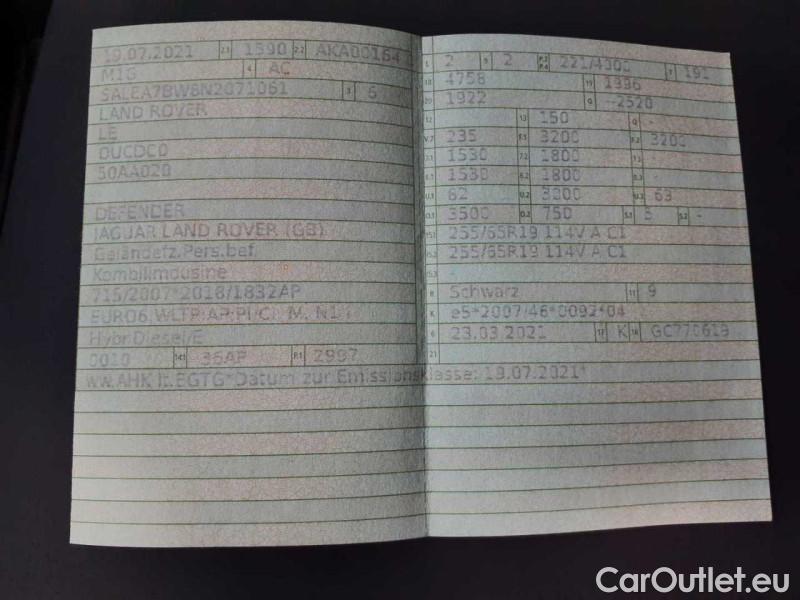 19.07.2021 2.1 1590 2.2 AKA00164
M1G 4 AC
SALEA7BW8N2071061 3 6
LAND ROVER
LE
DUCDC0
50AA020
DEFENDER
JAGUAR LAND ROVER (GB)
Geländefz.Pers.bef.
Kombilimousine
715/2007*2018/1832AP
EURO6 WLTP AP PI/CI M, N1 I
Hybr.Diesel/E
0010 14.1 36AP P.1 2997
ww.AHK lt.EGTG*Datum zur Emissionsklasse: 19.07.2021*
L 2 9 2 P.2 P.4 221/4000 T 191
18 4758 19 1996
20 1922 G --2520
12 - 13 150 Q -
V.7 235 F.1 3200 F.2 3200
7.1 1530 7.2 1800 -
8.1 1530 8.2 1800 -
U.1 82 U.2 3200 U.3 63
O.1 3500 O.2 750 S.1 5 S.2 -
15.1 255/65R19 114V A C1
15.2 255/65R19 114V A C1
15.3 -
R Schwarz 11 9
K e5*2007/46*0092*04
6 23.03.2021 17 K 16 GC770619
21
CarOutlet.eu